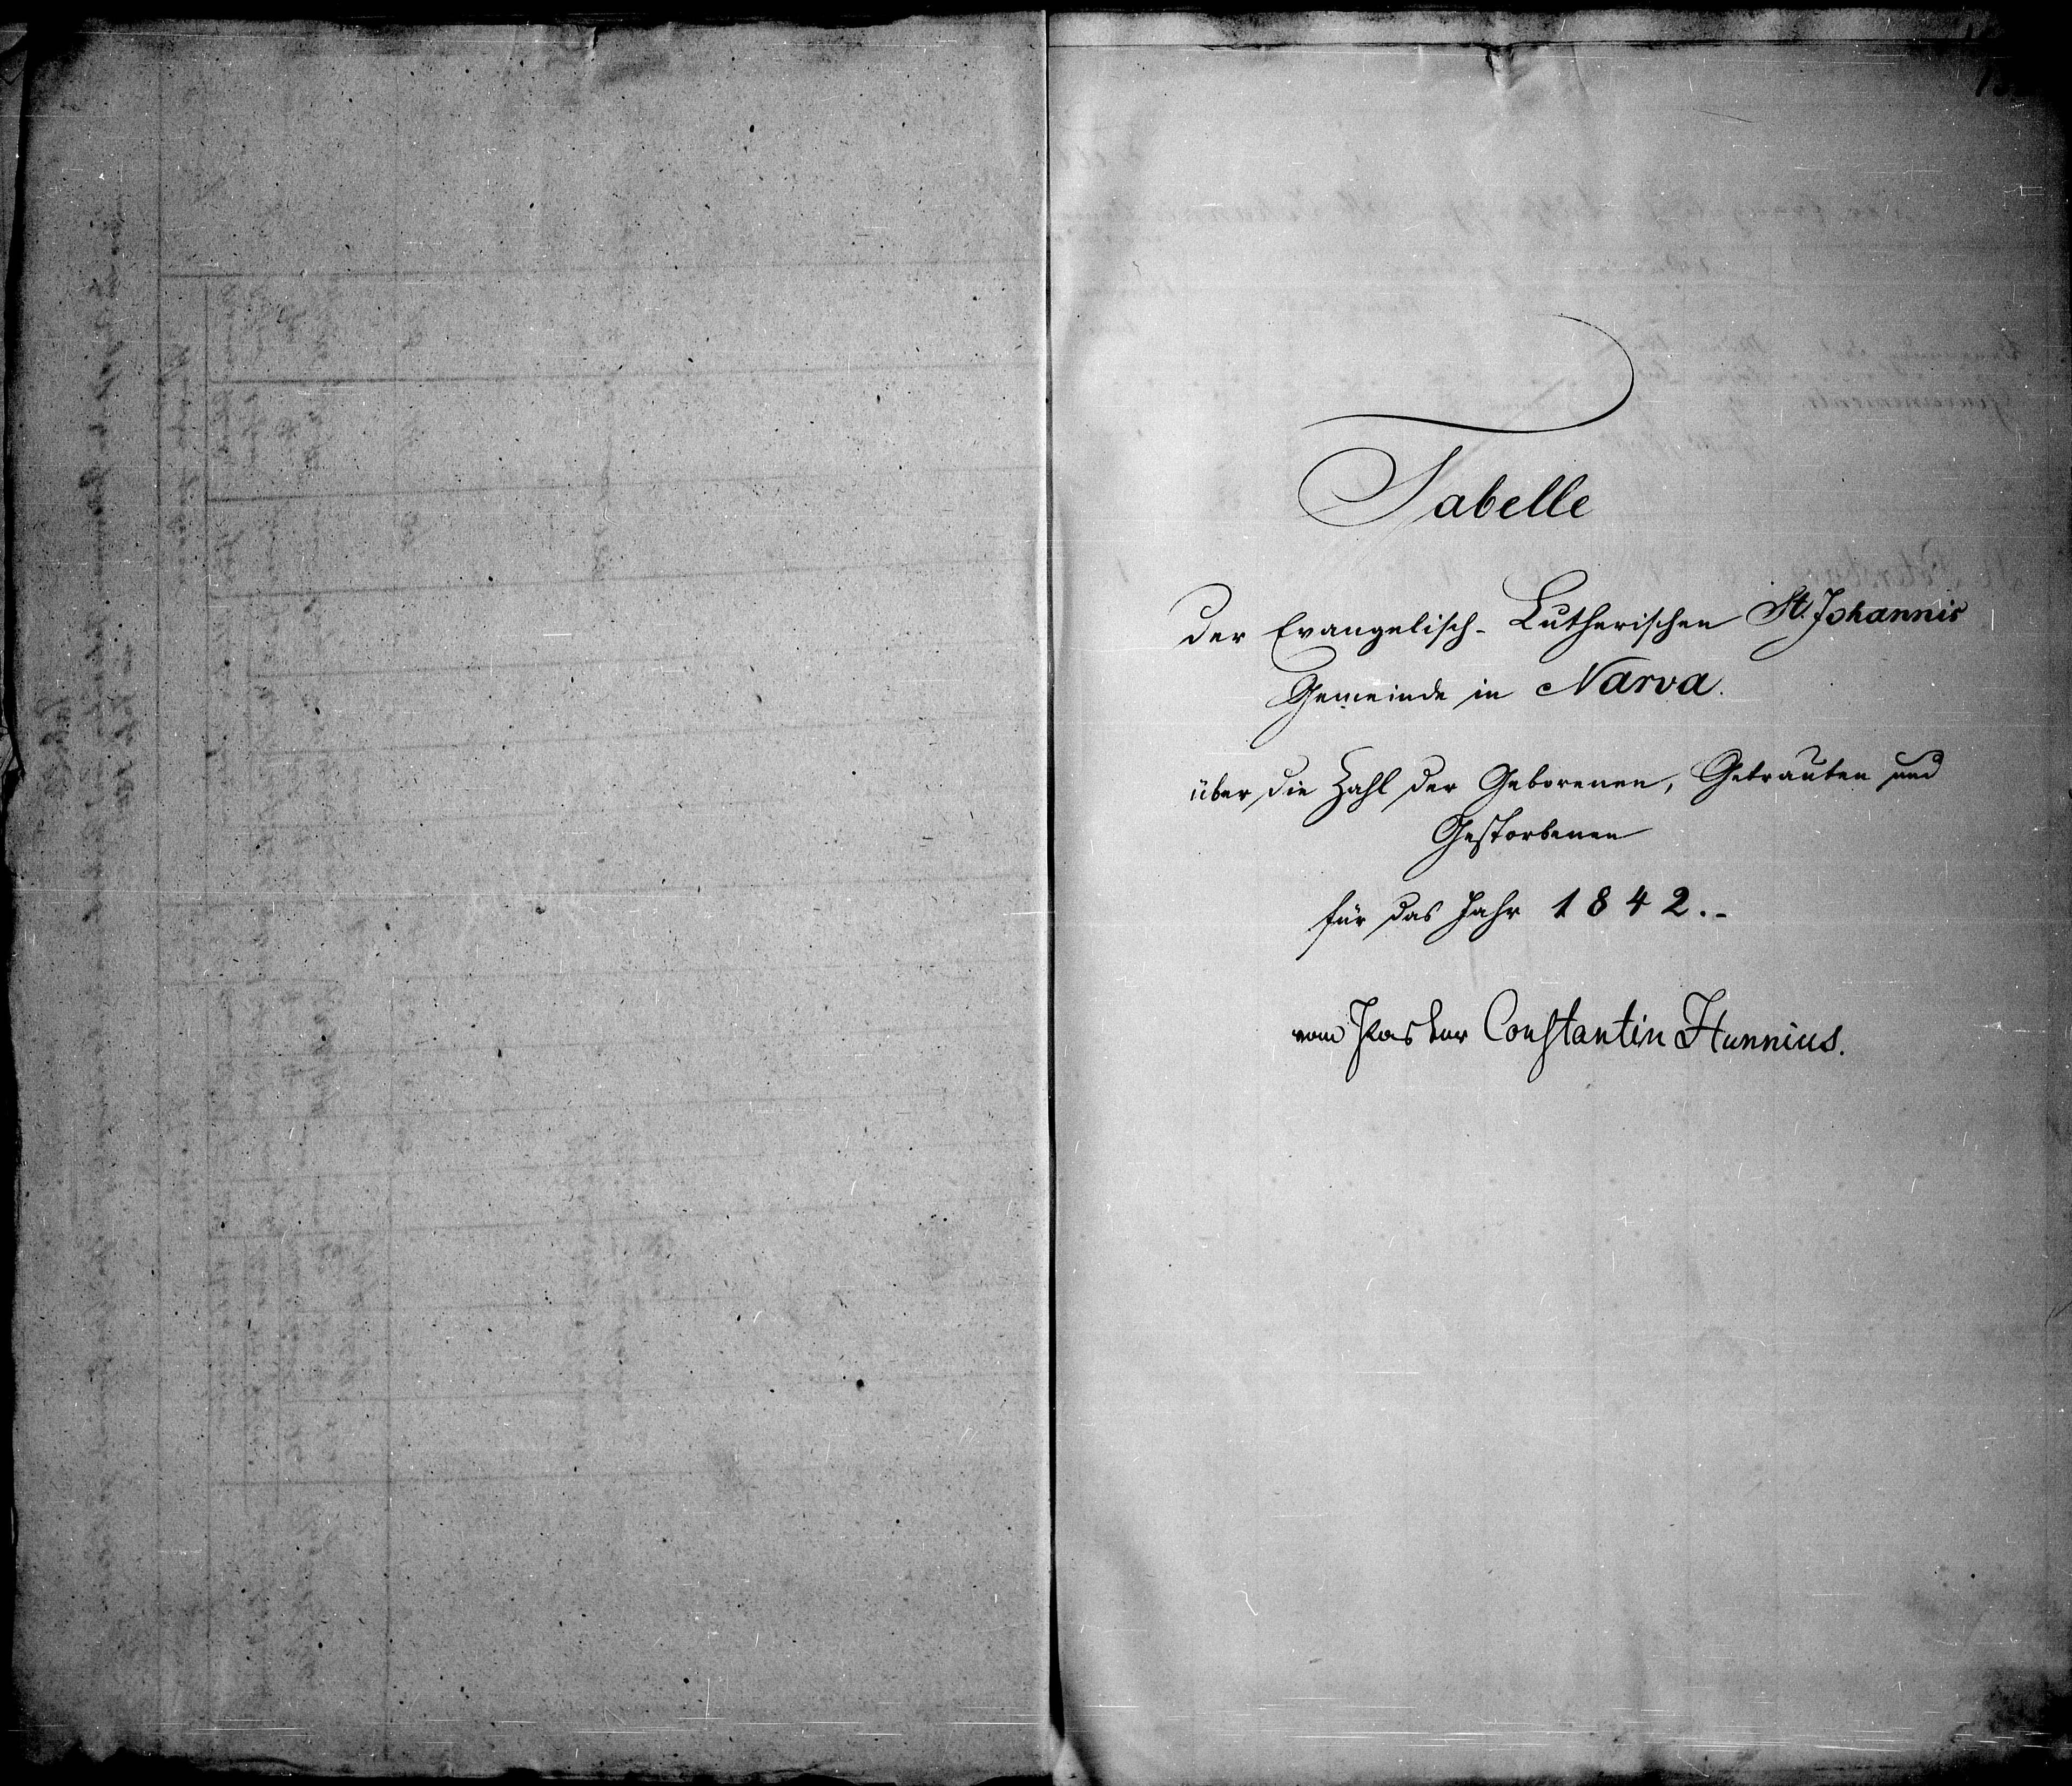 Tabelle
der Evangelisch-Lutherischen St. Johannis
Gemeinde in Narva.
über die Zahl der Geborenen, Getrauten und
Gestorbenen
für das Jahr 1842.-
vom Pastor Constantin Hunnius.